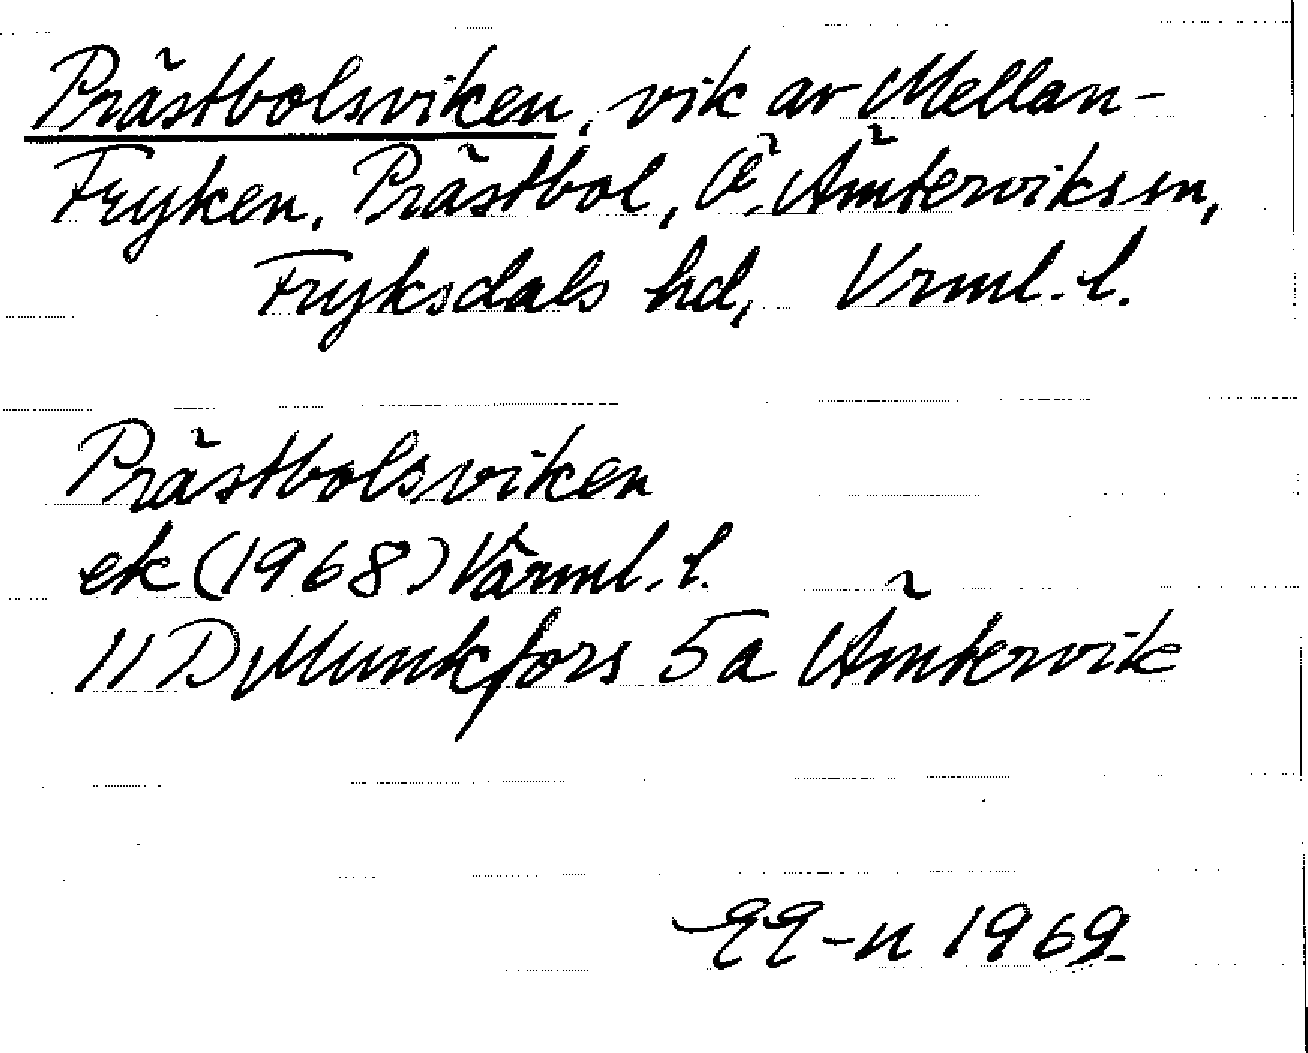 Prästbolsviken, vik av Mellan-
Fryken, Prästbol, Ö. Ämterviks sn,
Fryksdals hd, Vrml. l.
Prästbolsviken
ek (1968) Värml. l.
11 D Munkfors 5a Ämtervik
1969